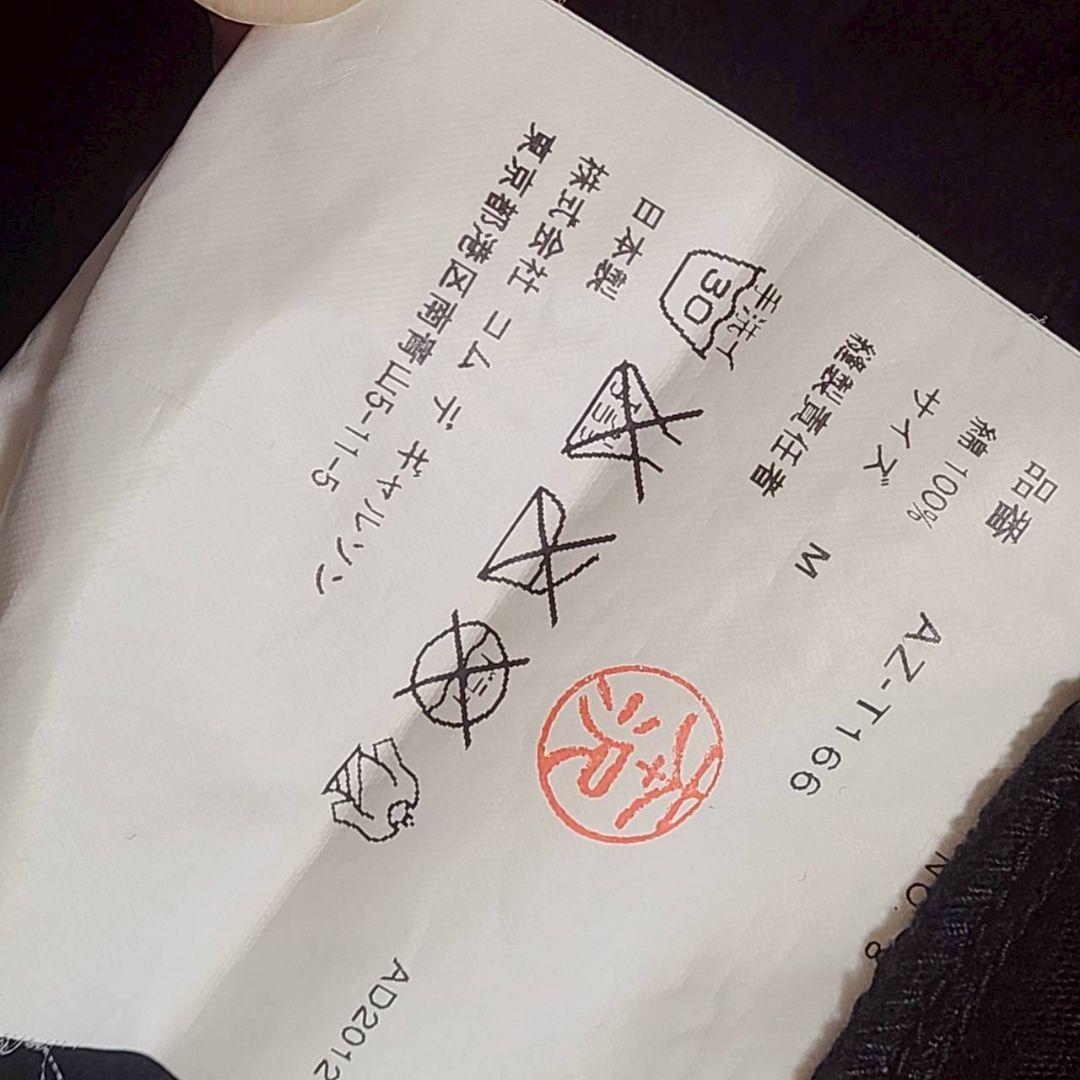 品番 AZ-T166 NO. 8
綿 100%
サイズ M
縫製責任者
手洗イ
30
日本製
株式会社 コム デ ギャルソン
東京都港区南青山5-11-5
AD2012